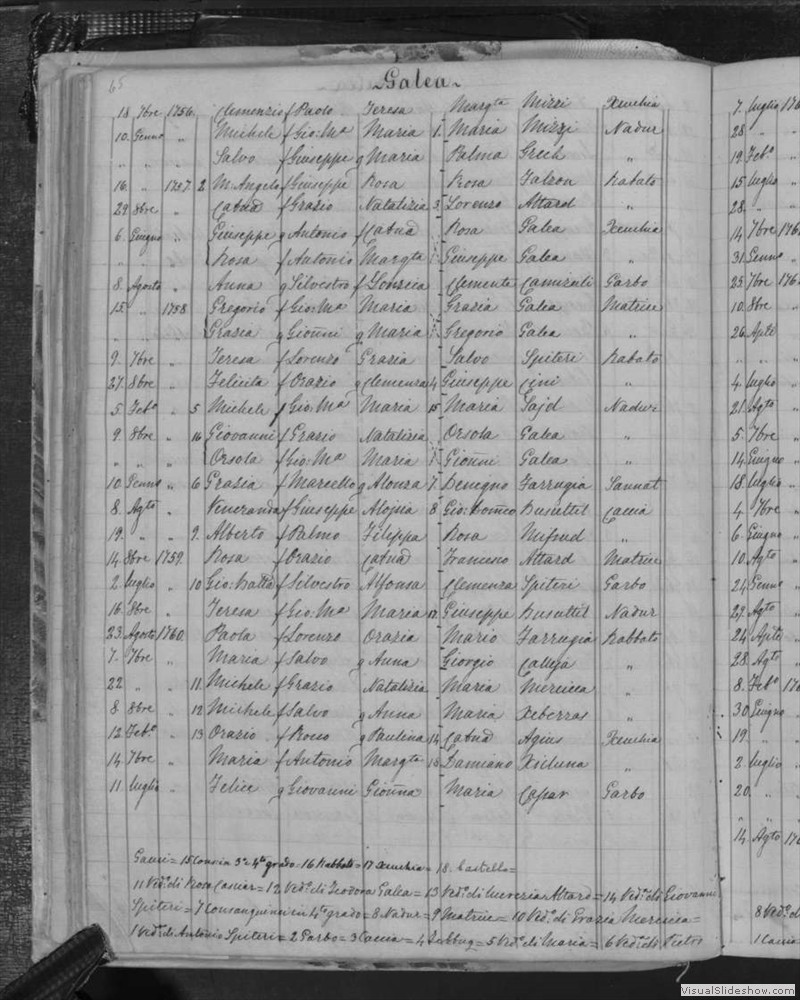 65
Galea
18 7bre 1756. Clemenzio f Paolo Teresa Margta Mizzi Xeuchia
10. Genno „ Michele f Gio: Ma Maria 1. Maria Mizzi Nadur
„ „ „ Salvo f Giuseppe g Maria Palma Grech „
16. „ 1757. 2 M. Angelo f Giuseppe Rosa Rosa Falzon Rabato
29. 8bre „ f Grazio Natalizia 3. Lorenzo Attard „
6. Giugno „ Giuseppe g Antonio f Rosa Galea Xeuchia
„ „ „ Rosa f Antonio Margta Giuseppe Galea „
8. Agosto „ Anna g Silvestro f Clemente Camenzuli Garbo
15. „ 1758 Gregorio f Gio: Ma Maria Grazia Galea Matrice
„ „ „ Grazia g Gioñni g Maria Gregorio Galea „
9. 7bre „ Teresa f Lorenzo Grazia Salvo Spiteri Rabato
27. 8bre „ Felicita f Orazio g Clemenza 4 Giuseppe Cini „
5. Febo „ 5 Michele f Gio: Ma Maria 15 Maria Sajd Nadur
9. 8bre „ 16 Giovanni f Grazio Natalizia Orsola Galea „
„ „ „ Orsola f Gio: Ma Maria Gioñni Galea „
10. Genno „ 6 Grazia f Marcello g Alonza 7 Benegno Farrugia Sannat
8. Agto „ Veneranda f Giuseppe Aloisia 8 Gio: Domco Busuttil Caccia
19. „ „ 9. Alberto f Palmo Filippa Rosa Mifsud „
14. 8bre 1759. Rosa f Orazio Francesco Attard Matrice
2. Luglio „ 10 Gio: Batta f Silvestro Alfonsa Clemenza Spiteri Garbo
16. 8bre „ Teresa f Gio: Ma Maria 17. Giuseppe Busuttil Nadur
23. Agosto 1760. Paola f Lorenzo Orazia Mario Farrugia Rabbato
7. 7bre „ Maria f Salvo g Anna Giorgio Calleja „
22 „ 11. Michele f Grazio Natalizia Maria Mercieca „
8. 8bre „ 12 Michele f Salvo g Anna Maria Xeberras „
12. Febo „ 13 Orazio f Rocco g Paulina 14 Agius Xeuchia
14. 7bre „ Maria f Antonio Margta 18 Damiano Xicluna „
11. Luglio „ Felice g Giovanni Gioñna Maria Capar Garbo
Caccia = 15 Consan 3o e 4to grado = 16 Rabbato = 17 Xeuchia = 18. Castello =
11 Vedo. di Rosa Cassar = 12 Vedo. di Teodora Galea = 13 Vedo. di Lucrezia Attard = 14 Veda. di Giovanni
Spiteri = 7 Consanguinei in 4to grado = 8 Nadur = 9 Matrice = 10 Vedo. di Grazia Mercieca =
1 Veda. di Antonio Spiteri = 2 Garbo = 3 Caccia = 4 Zebbug = 5 Vedo. di Maria = 6 Veda. di Pietro
7. Luglio 176
28 „ „
19. Febo „
15 Luglio „
28. „ „
14 7bre 176
31. Genno „
25. 7bre 176
10. 8bre „
26. Aple „
„ „ „
4. Luglio „
21. Agto „
5. 7bre „
14. Giugno „
18. Luglio „
4. 7bre „
6. Giugno „
10. Agto „
24. Genno „
27. Agto „
24. Aple „
28. Agto „
8. Febo 176
30. Giugno „
19. „ „
2. Luglio „
20. „ „
14. Agto 176
8 Vedo. d
1 Caccia
VisualSlideshow.com